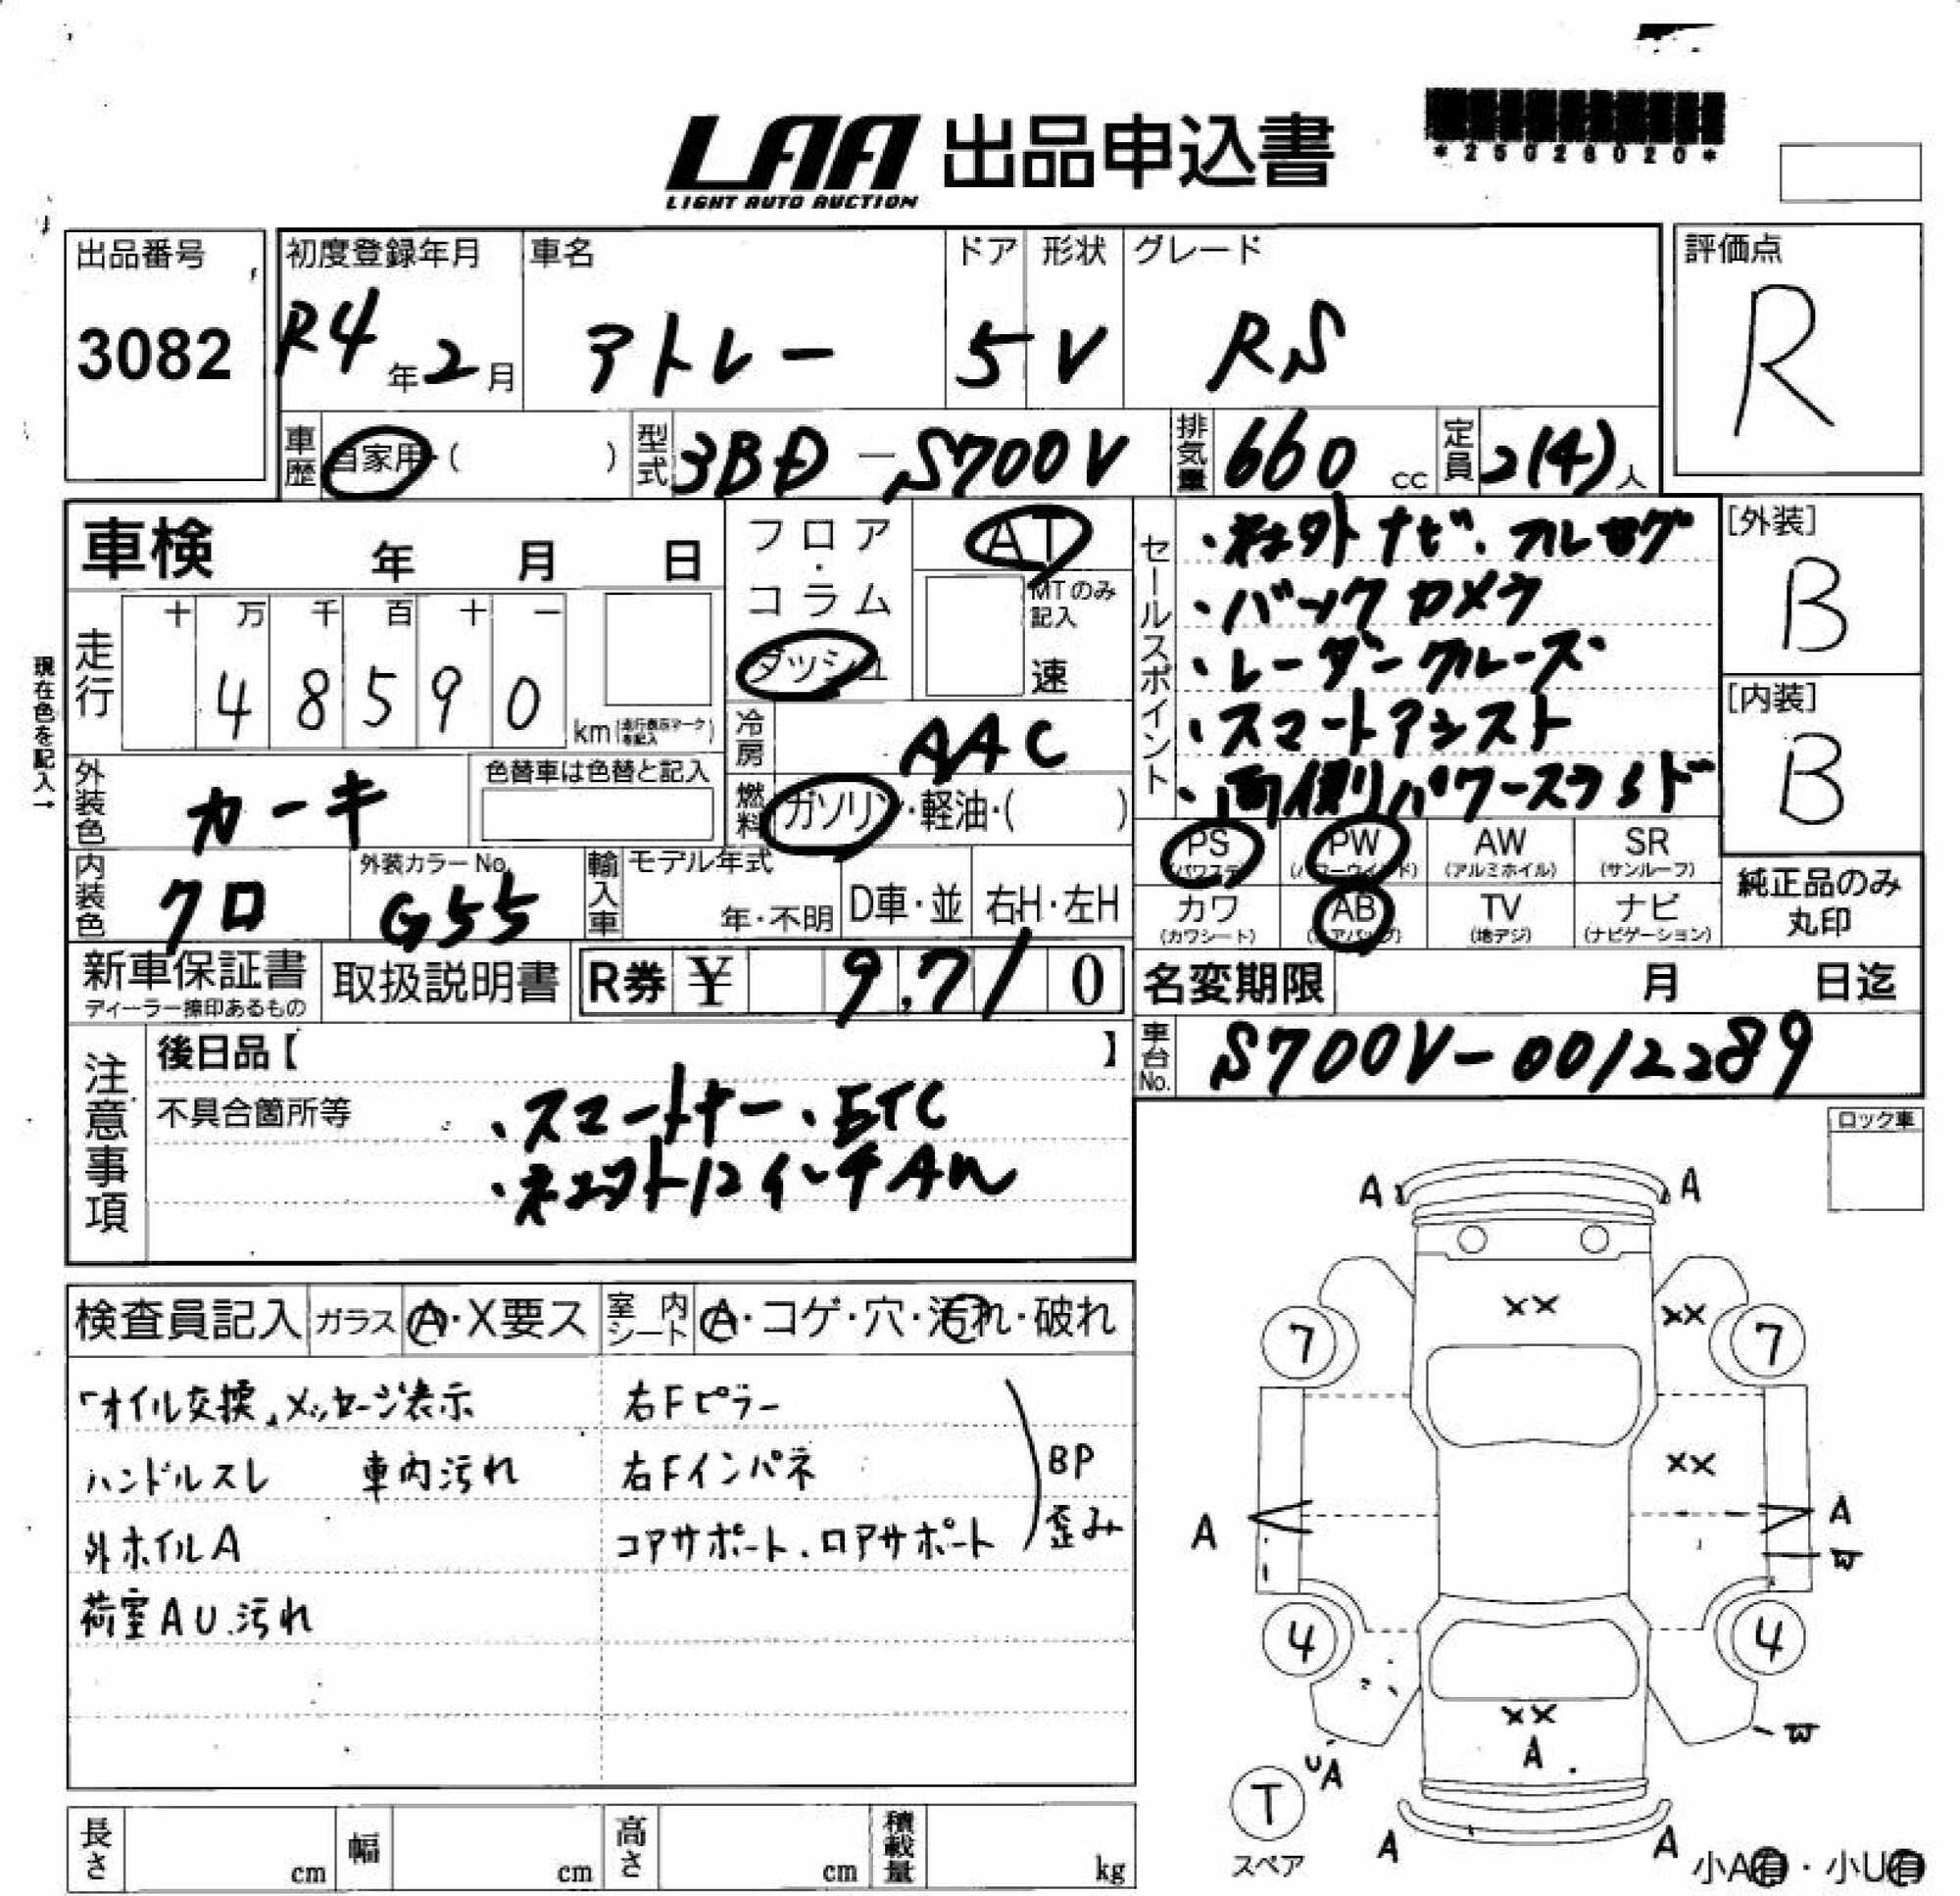 LAA 出品申込書
LIGHT AUTO AUCTION
*25026020*
出品番号
3082
初度登録年月
R4年2月
車名
アトレー
ドア
5
形状
V
グレード
RS
評価点
R
車歴
自家用・( )
型式
3BD-S700V
排気量
660cc
定員
2(4)人
車検 年 月 日
フロア・コラム
ダッシュ
AT
MTのみ記入
速
セールスポイント
・社外ナビ、フルセグ
・バックカメラ
・レーダークルーズ
・スマートアシスト
・両側パワースライド
[外装]
B
[内装]
B
現在色を記入→
走行
十 万 千 百 十 一
48590
km(走行表示マークを記入)
冷房
AAC
外装色
カーキ
色替車は色替と記入
燃料
ガソリン・軽油・( )
PS (パワステ)
PW (パワーウインド)
AW (アルミホイル)
SR (サンルーフ)
カワ (カワシート)
AB (エアバッグ)
TV (地デジ)
ナビ (ナビゲーション)
純正品のみ丸印
内装色
クロ
外装カラーNo.
G55
輸入車
モデル年式
年・不明
D車・並
右H・左H
新車保証書
ディーラー捺印あるもの
取扱説明書
R券 ¥ 9,710
名変期限 月 日迄
車台No.
S700V-0012289
注意事項
後日品【 】
不具合箇所等
・スマートキー、ETC
・社外12インチAW
ロック車
検査員記入
ガラス
A・X要ス
室内シート
A・コゲ・穴・汚れ・破れ
「オイル交換」メッセージ表示
ハンドルスレ 車内汚れ
外ホイルA
荷室AU.汚れ
右Fピラー
右Fインパネ
コアサポート、ロアサポート
BP
歪み
A A
XX XX
7 7
XX
A A
W
4 4
XX
A
W
UA
T
スペア
A A
小A有・小U有
長さ cm
幅 cm
高さ cm
積載量 kg